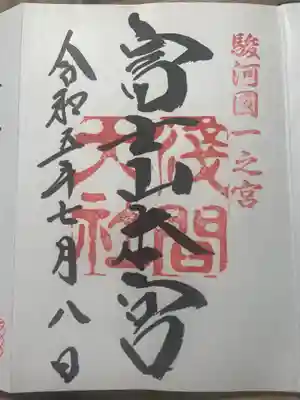 駿河國一之宮
富士山本宮
淺間大社
令和五年七月八日